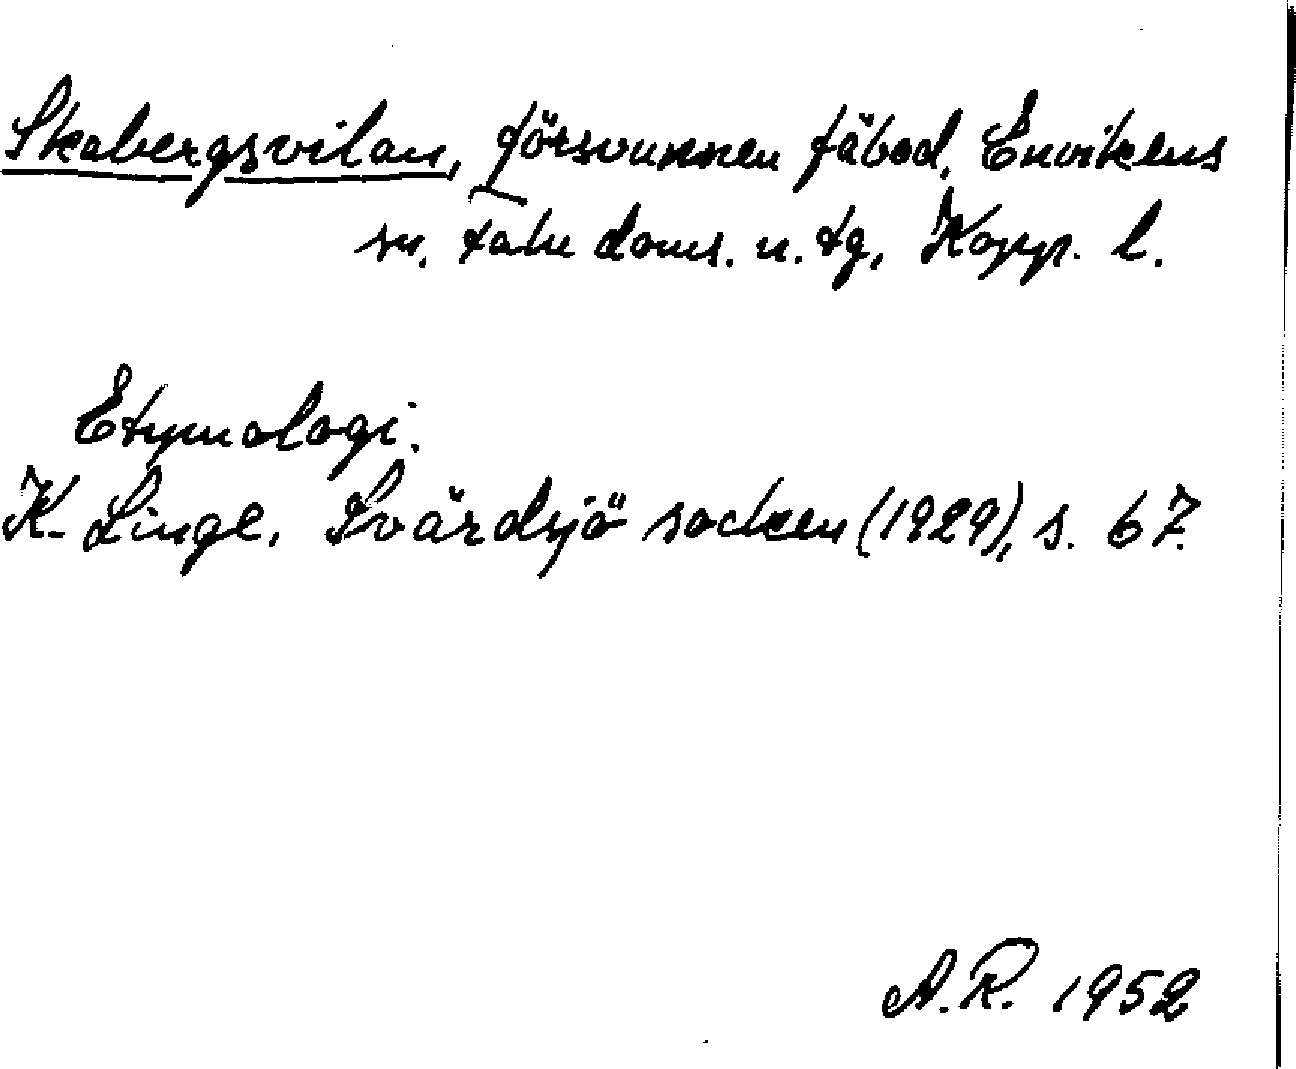 Skabergsvilan, försvunnen fäbod, Envikens
sn. Falu doms. n. tg, Kopp. l.
Etymologi.
K. Linge, Svärdsjö socken (1929), s. 67.
A.R. 1952